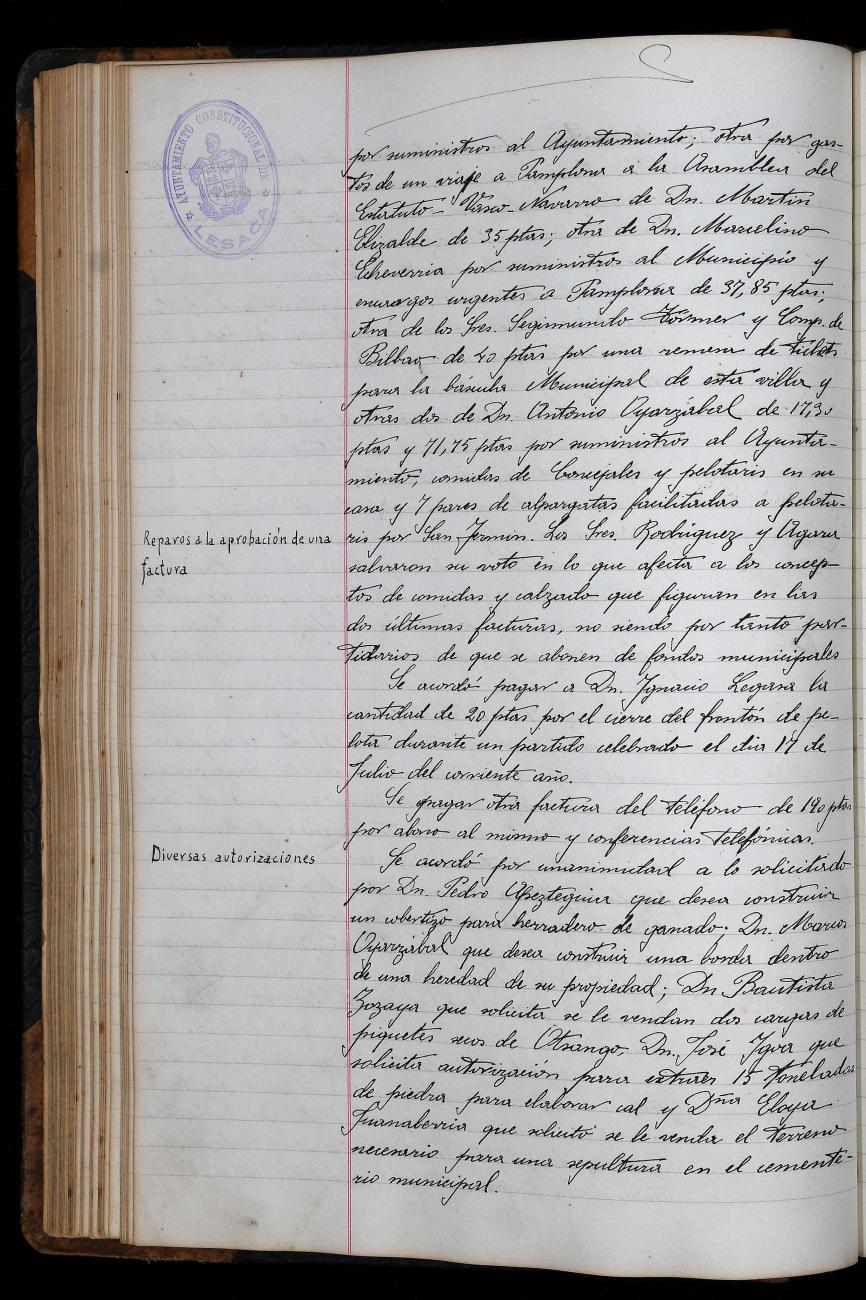 AYUNTAMIENTO CONSTITUCIONAL DE
LESACA
por suministros al Ayuntamiento; otra por gas-
tos de un viaje a Pamplona a la Asamblea del
Estatuto-Vasco-Navarro de Dn. Martin
Elizalde de 35 ptas; otra de Dn. Marcelino
Echeverria por suministros al Municipio y
encargos urgentes a Pamplona de 37,85 ptas;
otra de los Sres. Segimundo y Comp. de
Bilbao de 40 ptas por una remesa de tickets
para la báscula Municipal de esta villa y
otras dos de Dn. Antonio Oyarzábal de 17,30
ptas y 71,75 ptas por suministros al Ayunta-
miento, comidas de Concejales y pelotaris en su
casa y 7 pares de alpargatas facilitadas a pelota-
ris por San Fermin. Los Sres. Rodriguez y Agara
salvaron su voto en lo que afecta a los concep-
tos de comidas y calzado que figuran en las
dos últimas facturas, no siendo por tanto par-
tidarios de que se abonen de fondos municipales
Reparos a la aprobación de una
factura
Se acordó pagar a Dn. Ignacio Legasa la
cantidad de 20 ptas por el cierre del frontón de pe-
lota durante un partido celebrado el dia 17 de
Julio del corriente año.
Se pagar otra factura del teléfono de 190 ptas
por abono al mismo y conferencias telefónicas.
Diversas autorizaciones
Se acordó por unanimidad a lo solicitado
por Dn. Pedro Apezteguia que desea construir
un cobertizo para herradero de ganado; Dn. Marcos
Oyarzábal que desea construir una borda dentro
de una heredad de su propiedad; Dn. Bautista
Zozaya que solicita se le vendan dos cargas de
piquetes secos de Otsango, Dn. José Igoa que
solicita autorización para extraer 15 toneladas
de piedra para elaborar cal y Dña Eloya
Juanaberria que solicitó se le venda el terreno
necesario para una sepultura en el cemente-
rio municipal.